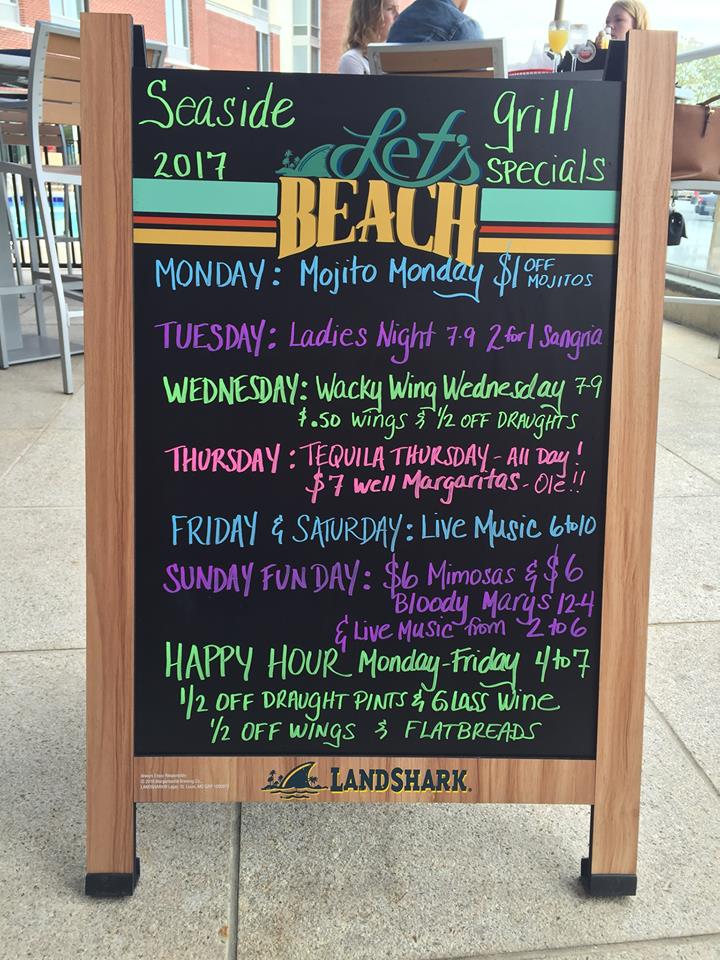 Seaside Grill
2017 Let's SPECIALS
BEACH
MONDAY: Mojito Monday $1 OFF MOJITOS
TUESDAY: Ladies Night 7-9 2 for 1 Sangria
WEDNESDAY: Wacky Wing Wednesday 7-9
$.50 Wings & 1/2 OFF DRAUGHTS
THURSDAY: TEQUILA THURSDAY - All Day!
$7 Well Margaritas - Ole!!
FRIDAY & SATURDAY: Live Music 6 to 10
SUNDAY FUNDAY: $6 Mimosas & $6
Bloody Marys 12-4
& Live Music from 2 to 6
HAPPY HOUR Monday-Friday 4 to 7
1/2 OFF DRAUGHT PINTS & Glass Wine
1/2 OFF WINGS & FLATBREADS
Always Enjoy Responsibly.
LANDSHARK